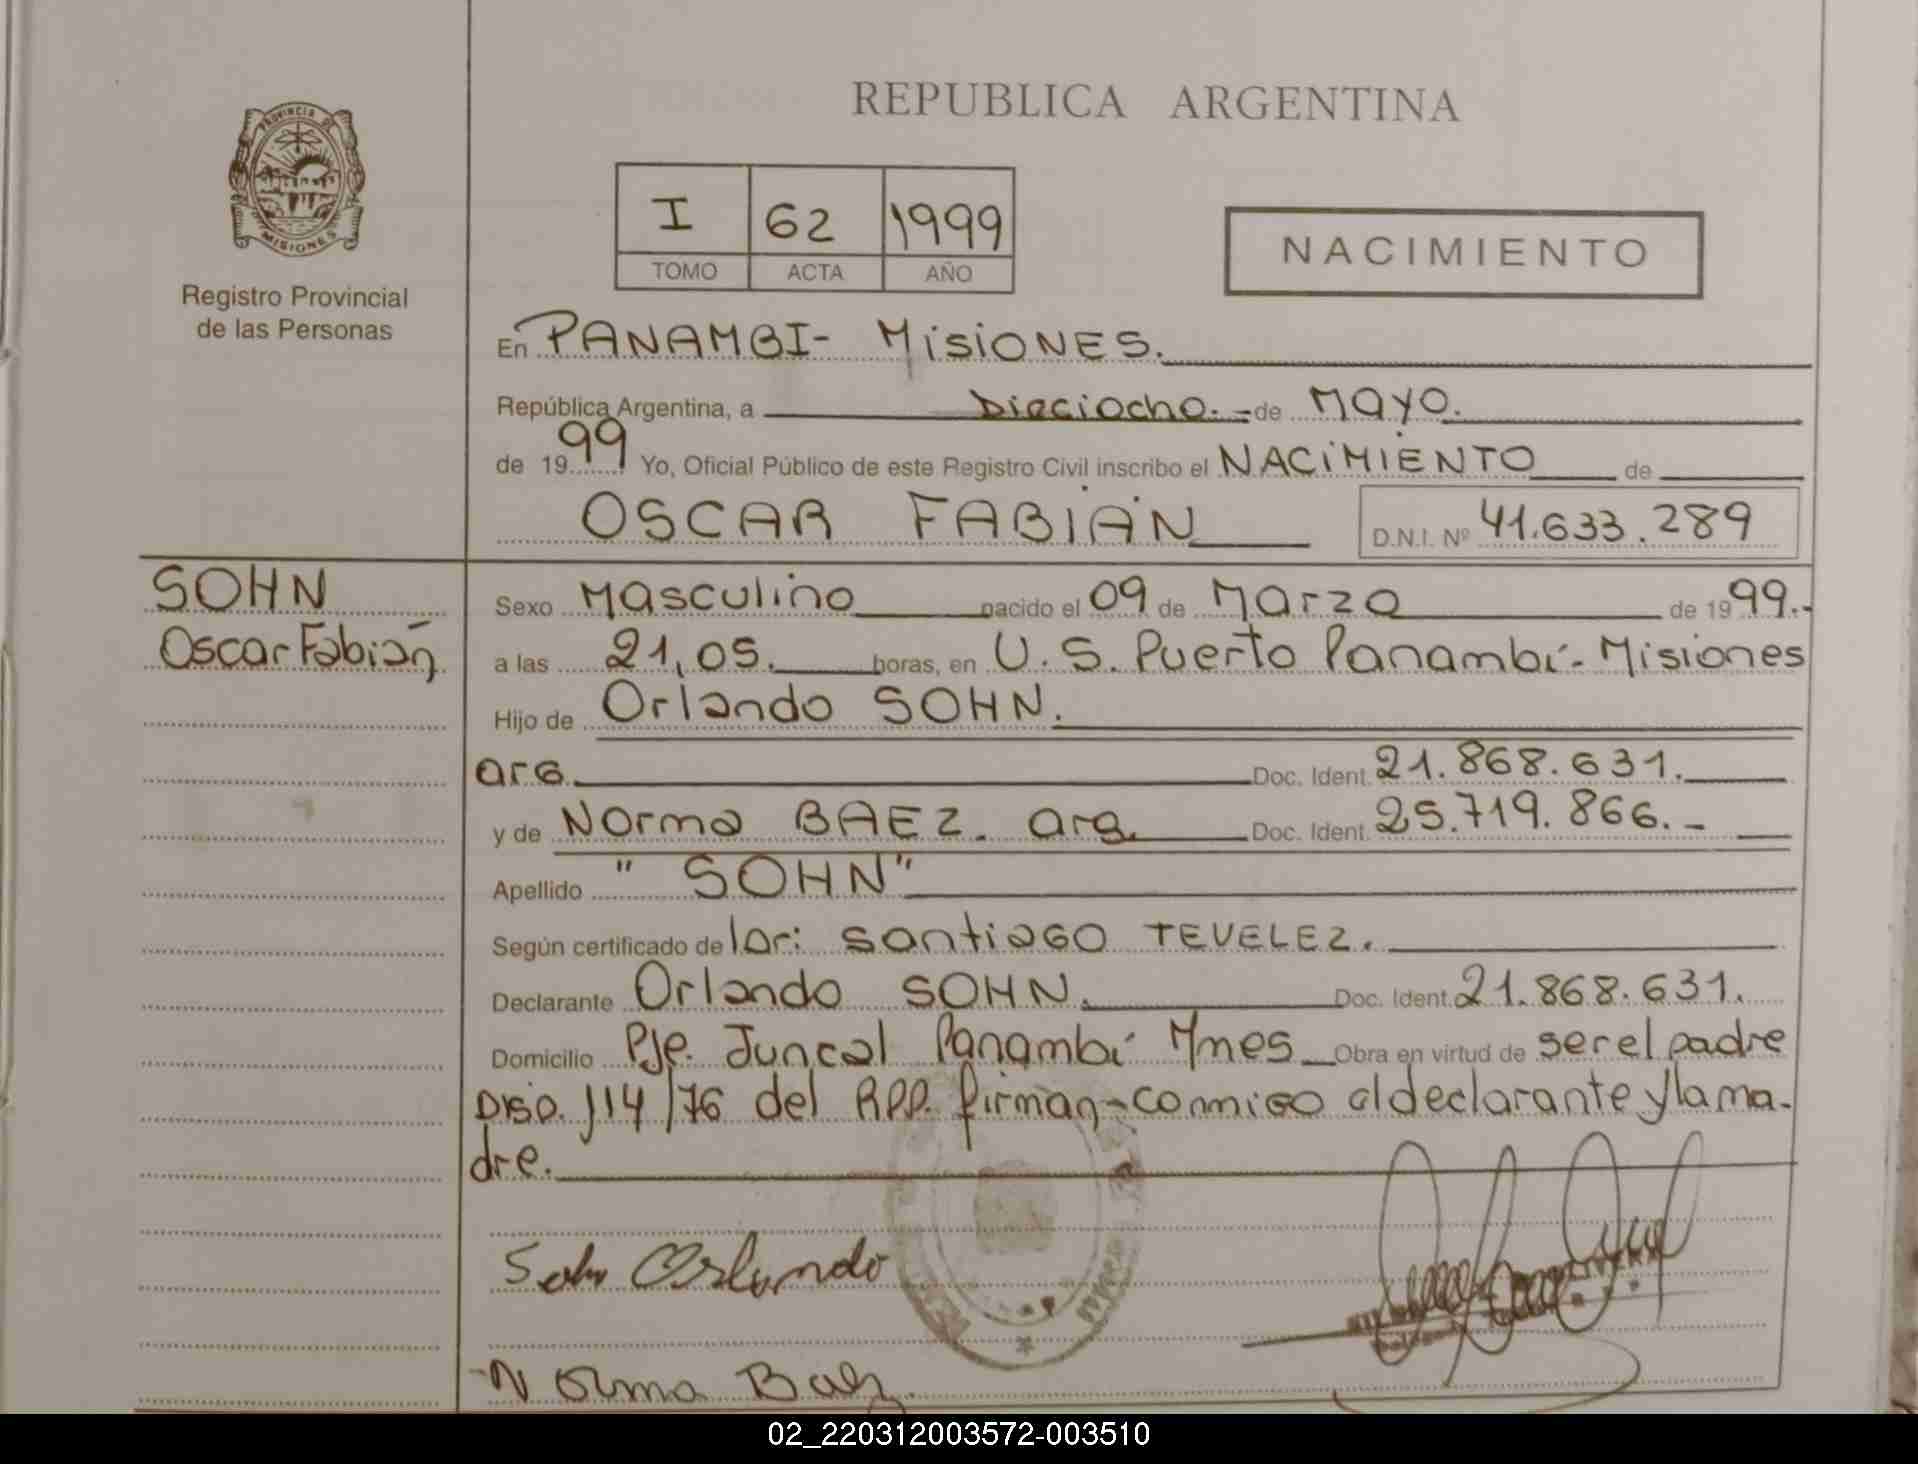 REPUBLICA ARGENTINA
PROVINCIA DE
MISIONES
Registro Provincial
de las Personas
I 62 1999
TOMO ACTA AÑO
NACIMIENTO
En PANAMBI- MisiONES.
República Argentina, a Dieciocho.- de Mayo.
de 1999 Yo, Oficial Público de este Registro Civil inscribo el NACIMIENTO de
OSCAR FABIÁN D.N.I. Nº 41.633.289
SOHN
Oscar Fabián
Sexo Masculino nacido el 09 de Marzo de 1999.-
a las 21,05. horas, en U.S. Puerto Panambí- Misiones
Hijo de Orlando SOHN.
arg. Doc. Ident. 21.868.631.
y de Norma BAEZ. arg. Doc. Ident. 25.719.866.-
Apellido "SOHN"
Según certificado de Santiago TEVELEZ.
Declarante Orlando SOHN. Doc. Ident. 21.868.631.
Domicilio Pje. Juncal Panambí Mnes Obra en virtud de ser el padre
Disp. 114/76 del RPP. firman conmigo el declarante y la ma-
dre.
Sohn Orlando
Norma Baez
02_220312003572-003510